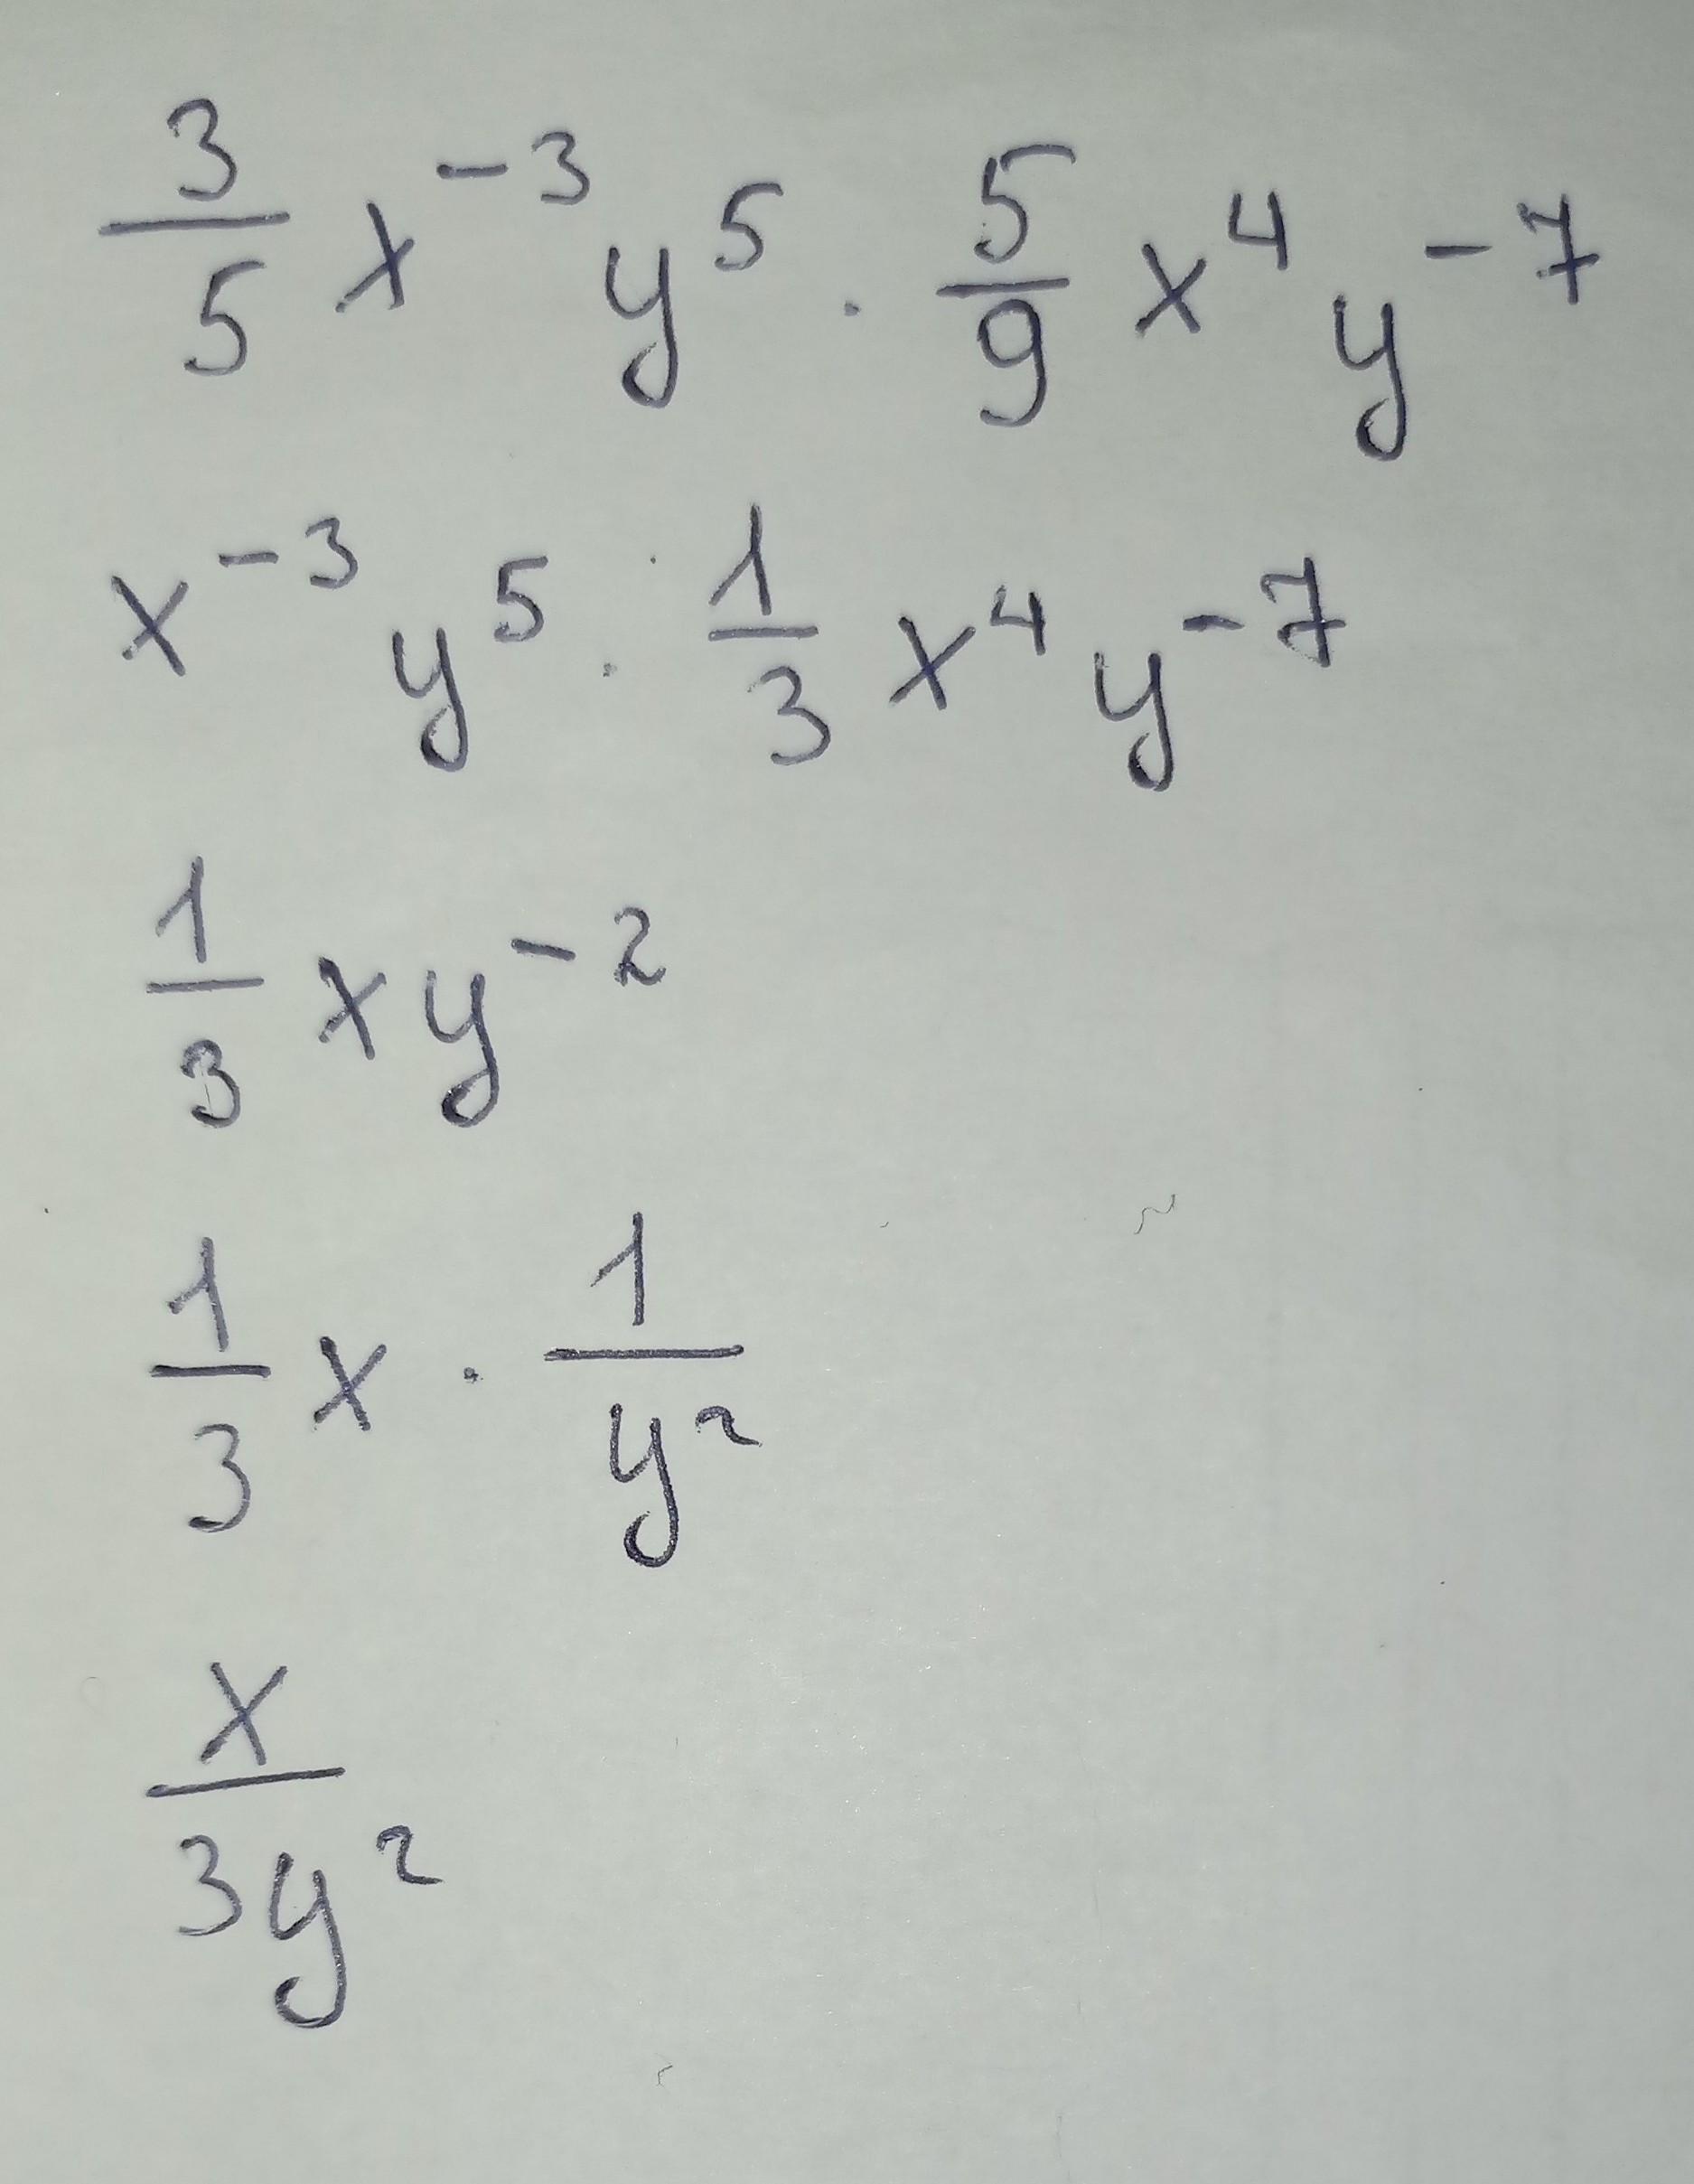 3/5 x^-3 y^5 · 5/9 x^4 y^-7
x^-3 y^5 · 1/3 x^4 y^-7
1/3 x y^-2
1/3 x · 1/y^2
x/3y^2